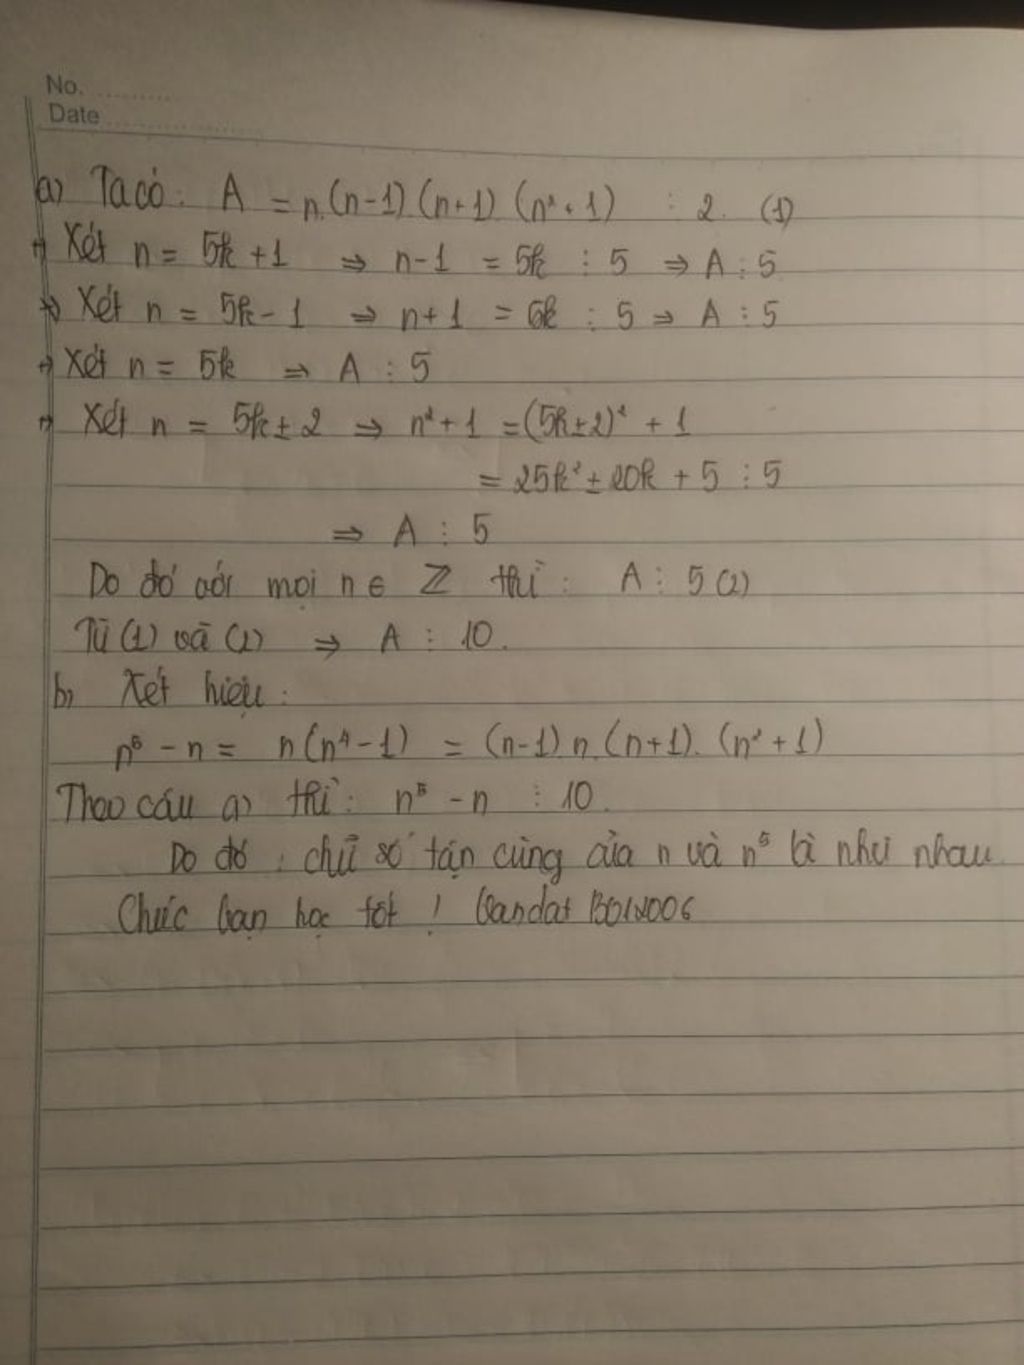 No. ............
Date ............
a) Ta có: A = n.(n-1)(n+1)(n²+1) ⋮ 2. (1)
+) Xét n = 5k+1 ⇒ n-1 = 5k ⋮ 5 ⇒ A ⋮ 5
+) Xét n = 5k-1 ⇒ n+1 = 5k ⋮ 5 ⇒ A ⋮ 5
+) Xét n = 5k ⇒ A ⋮ 5
+) Xét n = 5k±2 ⇒ n²+1 = (5k±2)² + 1
= 25k² ± 20k + 5 ⋮ 5
⇒ A ⋮ 5
Do đó với mọi n ∈ ℤ thì: A ⋮ 5 (2)
Từ (1) và (2) ⇒ A ⋮ 10.
b) Xét hiệu:
n⁵ - n = n(n⁴-1) = (n-1).n.(n+1).(n²+1)
Theo câu a) thì: n⁵ - n ⋮ 10.
Do đó: chữ số tận cùng của n và n⁵ là như nhau
Chúc bạn học tốt!